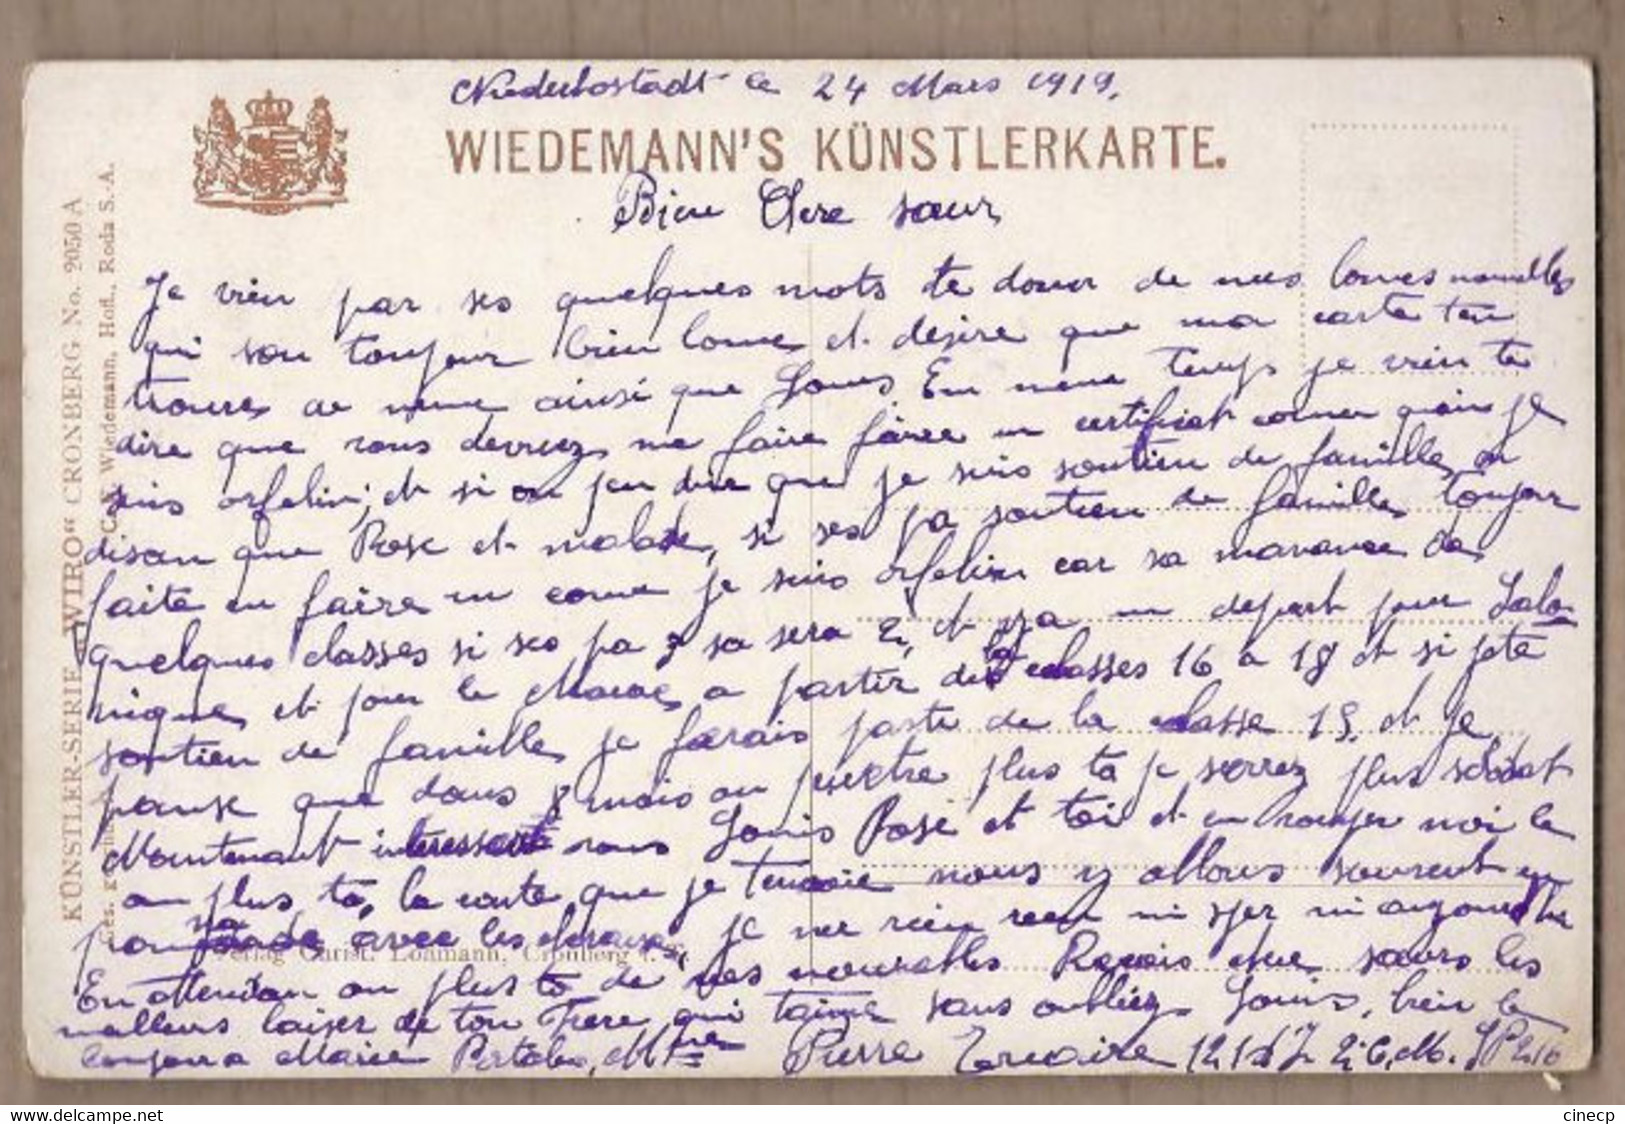 Niederhostadt le 24 Mars 1919.
WIEDEMANN'S KÜNSTLERKARTE.
Bien Chere sœur
Je vien par ses quelques mots te doner de mes bones nouvelles
qui son toujour bien bone et désire que ma carte ten
trouve de meme ainsi que Louis En meme temps je vien te
dire que vous devriez me faire faire un certificat comme quoi je
suis orfelin; et si on peu dire que je suis soutien de famille, en
disan que Rose et malade, si ses pa soutien de famille toujour
faite en faire un come je suis orfelin car sa mavance de
quelques classes si ses pa 3 sa sera 2, et ya un depart pour Salo-
nique, et pour le Maroc, a partir de la classes 16 a 18 et si jete
soutien de famille je ferais partie de la classe 15. et je
panse que dans 8 mois ou peuetre plus to je serrez plus soldat
Maintenant interessert vous Louis Rose et toi et en voyer moi la
au plus to, la carte que je tenvoie nous y allons souvent en
promenade avec les chevaux, je ne rien recu ni yer ni aujourdhu
En attendan au plus to de vos nouvelles Recois chere sœurs les
meilleurs baiser de ton Frere qui taime sans oubliez Louis, bien le
bonjour a Marie Pierre 12 2e C.M. SP 216
KÜNSTLER-SERIE „WIRO“ CRONBERG No. 2050 A
Wiedemann, Hofl., Roda S.-A.
Verlag Christ. Lohmann, Cronberg i. T.
cinecp